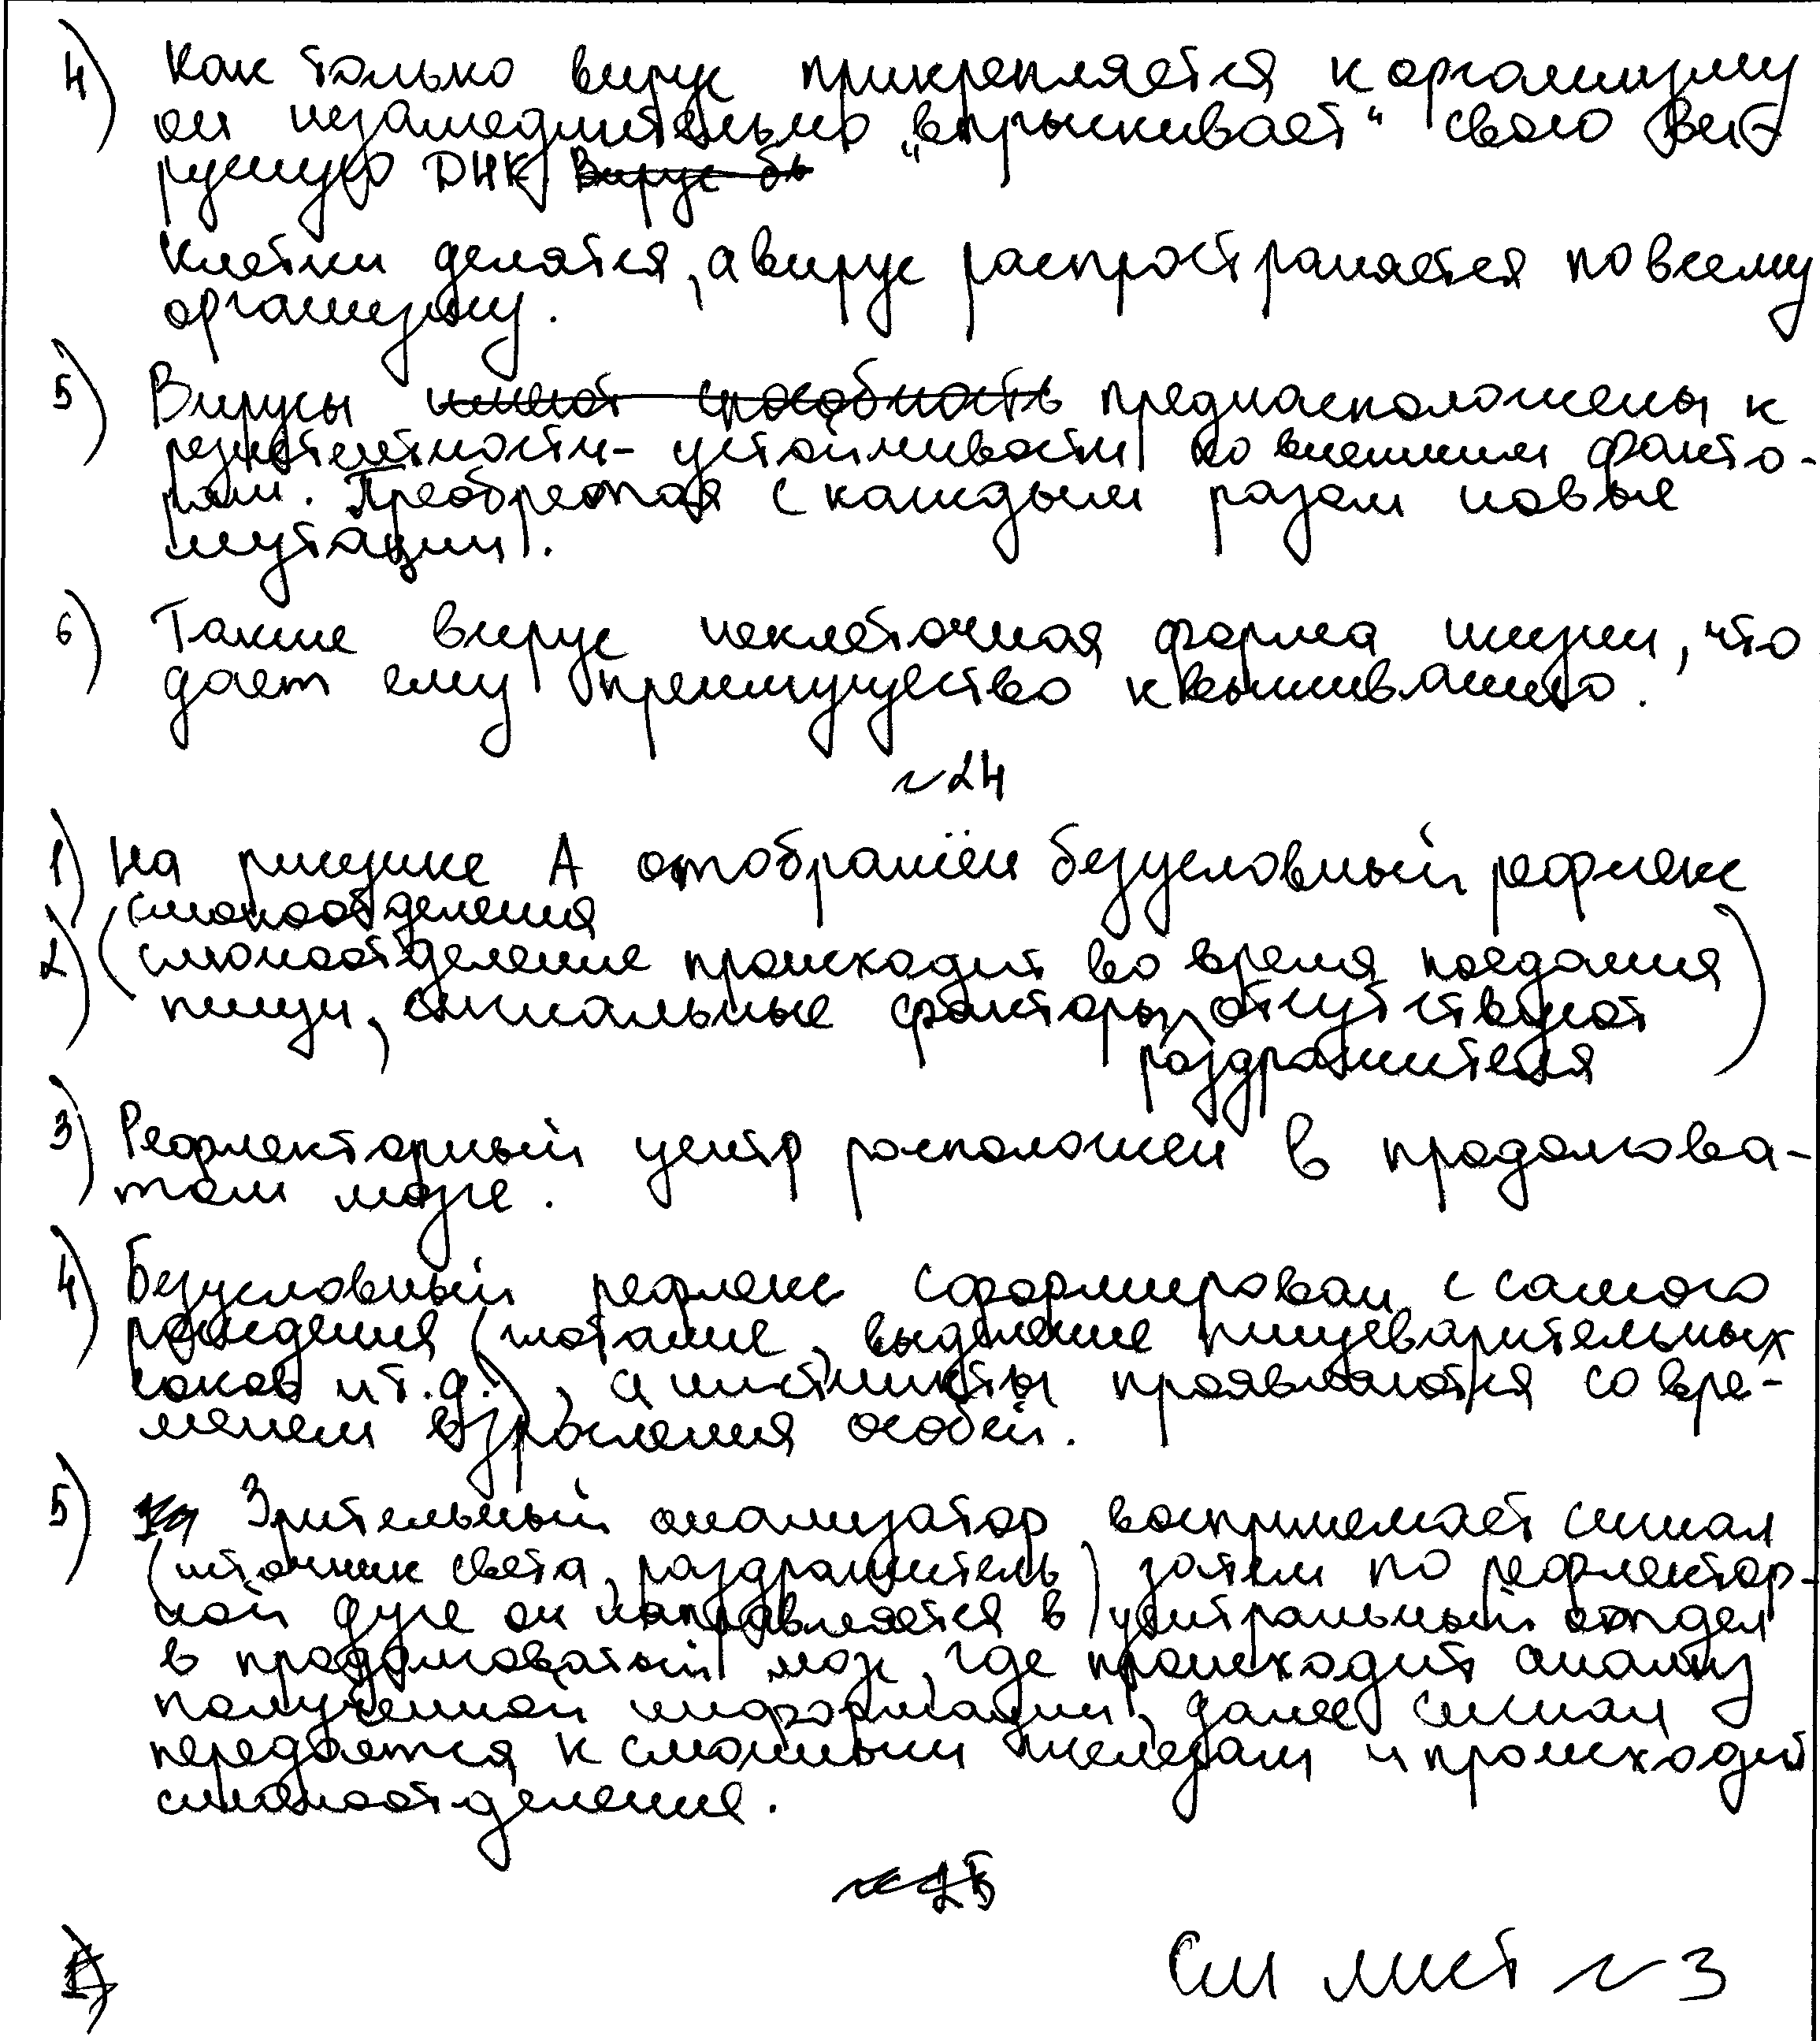 4) Как только вирус прикрепляется к организму
он незамедлительно „впрыскивает" свою ви-
русную ДНК. Вирус бы
Клетки делятся, а вирус распространяется по всему
организму.
5) Вирусы имеют способность предрасположены к
резистентности - устойчивости ко внешним факто-
рам. Преобретая с каждым разом новые
мутации.
6) Также вирус неклеточная форма жизни, что
дает ему преимущество к выживанию.
№24
1) На рисунке А отображён безусловный рефлекс
слюноотделения
2) (слюноотделение происходит во время поедания
пищи, сигнальные факторы, отсутствуют
раздражителя)
3) Рефлекторный центр расположен в продолгова-
том мозге.
4) Безусловный рефлекс сформирован с самого
рождения (глотание, выделение пищеварительных
соков и т.д.), а инстинкты проявляются со вре-
менем взросления особей.
5) Зрительный анализатор воспринемает сигнал
(источник света, раздражитель) затем по рефлектор-
ной дуге он направляется в центральный отдел
в продолговатый мозг, где происходит анализ
полученной информации, далее сигнал
передается к слюнным железам и происходит
слюноотделение.
№25
1)
См лист №3